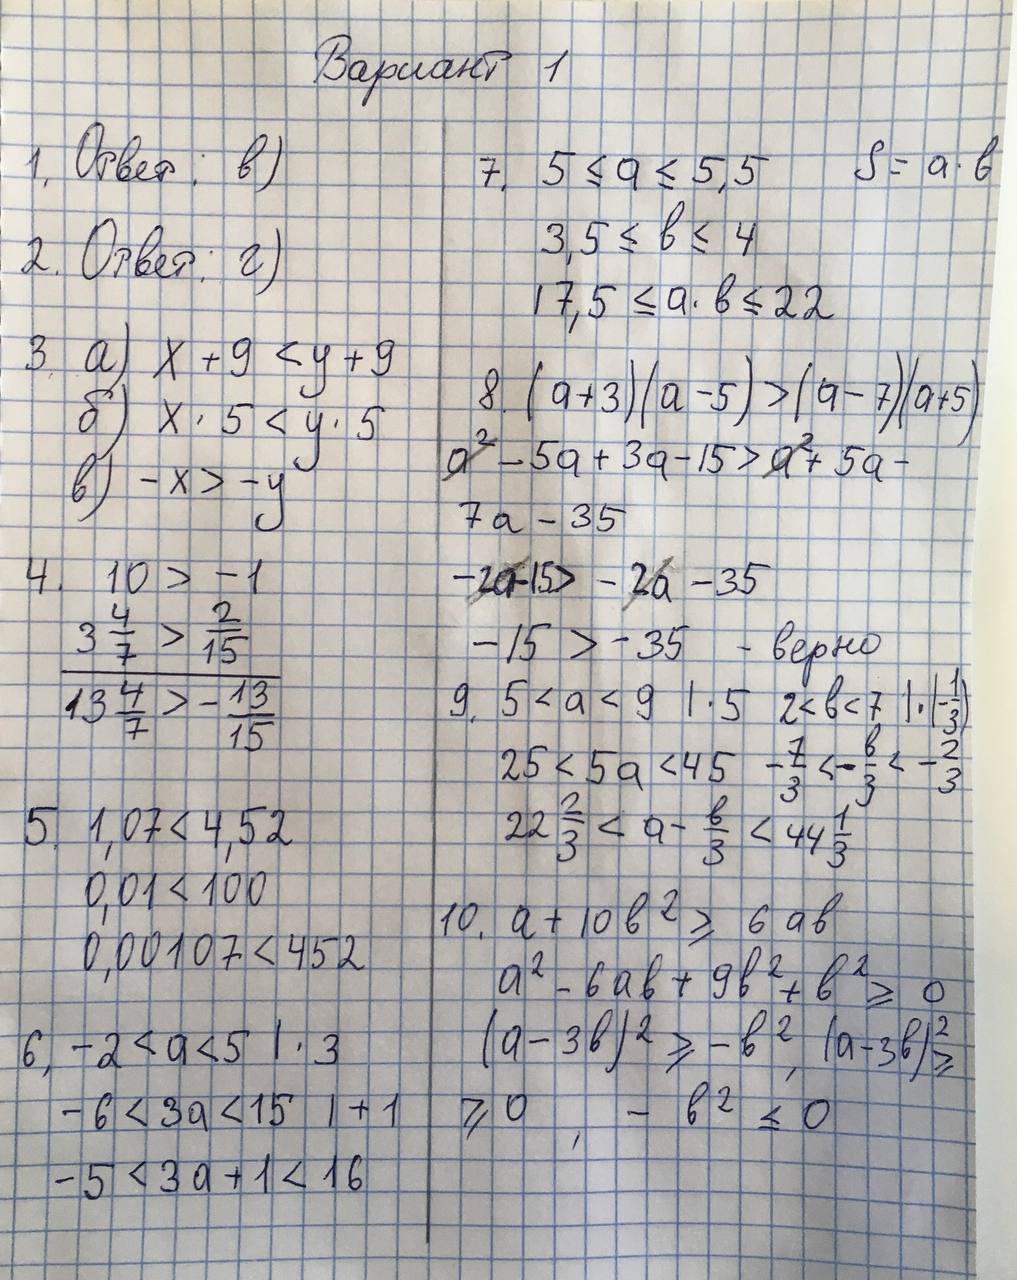 Вариант 1
1. Ответ: в)
2. Ответ: г)
3. а) x + 9 < y + 9
б) x · 5 < y · 5
в) -x > -y
4. 10 > -1
3 4/7 > 2/15
13 4/7 > - 13/15
5. 1,07 < 4,52
0,01 < 100
0,00107 < 452
6. -2 < a < 5 | · 3
-6 < 3a < 15 | + 1
-5 < 3a + 1 < 16
7. 5 ≤ a ≤ 5,5 S = a · в
3,5 ≤ в ≤ 4
17,5 ≤ a · в ≤ 22
8. (a+3)(a-5) > (a-7)(a+5)
a² - 5a + 3a - 15 > a² + 5a -
7a - 35
-2a - 15 > -2a - 35
-15 > -35 - верно
9. 5 < a < 9 | · 5 2 < в < 7 | · (-1/3)
25 < 5a < 45 -7/3 < -в/3 < -2/3
22 2/3 < a - в/3 < 44 1/3
10. a + 10в² ≥ 6aв
a² - 6aв + 9в² + в² ≥ 0
(a - 3в)² ≥ -в², (a - 3в)² ≥
≥ 0, - в² ≤ 0